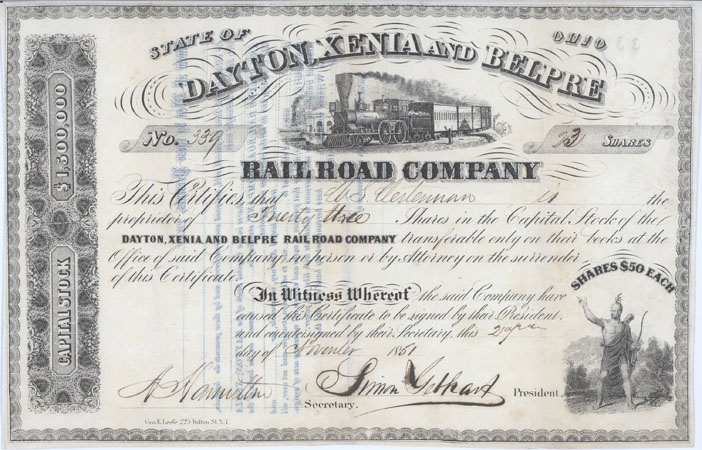 STATE OF OHIO
DAYTON, XENIA AND BELPRE
No. 339
23 SHARES
RAIL ROAD COMPANY
This Certifies that is the
proprietor of Twenty three Shares in the Capital Stock of the
DAYTON, XENIA, AND BELPRE RAIL ROAD COMPANY transferable only on their books at the
Office of said Company in person or by Attorney on the surrender
of this Certificate.
In Witness Whereof the said Company have
caused this Certificate to be signed by their President,
and countersigned by their Secretary, this
day of November 1861
Simon Gebhart President
Secretary.
$1,300,000
CAPITAL STOCK
SHARES $50 EACH
Fulton St. N.Y.